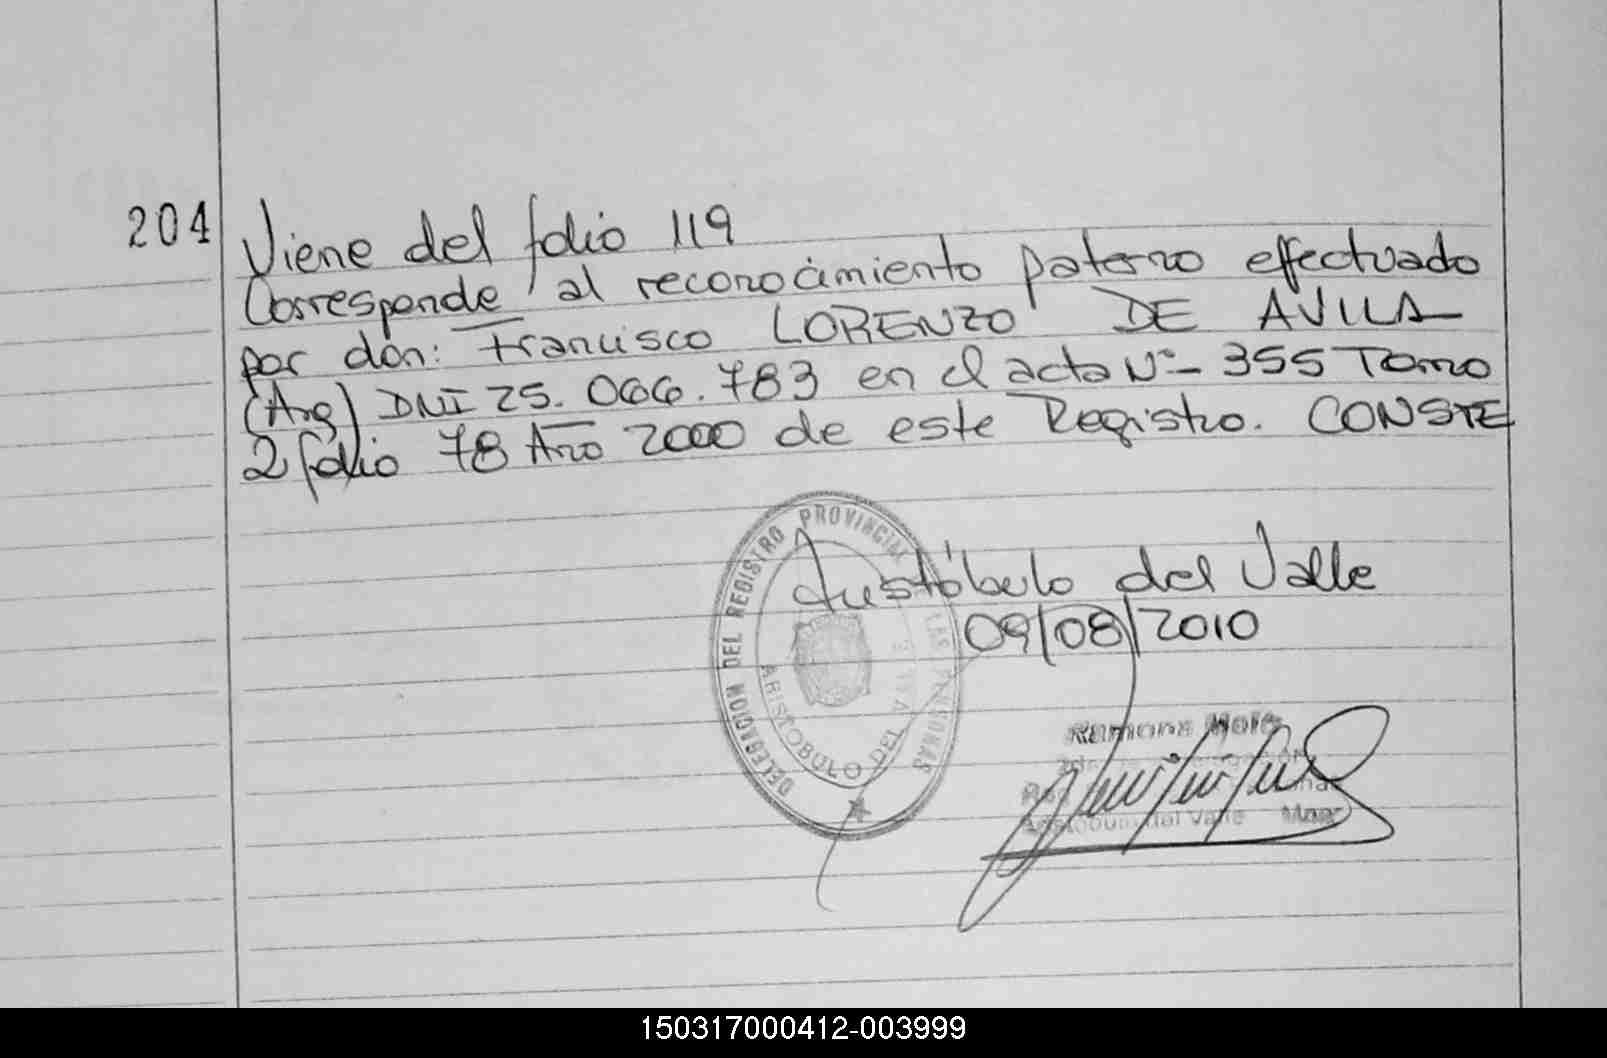 204
Viene del folio 119
Corresponde al reconocimiento paterno effectuado
por don: Francisco LORENZO DE AVILA
(Arg) DNI 25.066.783 en el acta Nº 355 Tomo
2 folio 78 Año 2000 de este Registro. CONSTE
DELEGACION DEL REGISTRO PROVINCIAL LAS PERSONAS
ARISTOBULO DEL VALLE
Aristóbulo del Valle
09/08/2010
Ramona
del Valle
150317000412-003999